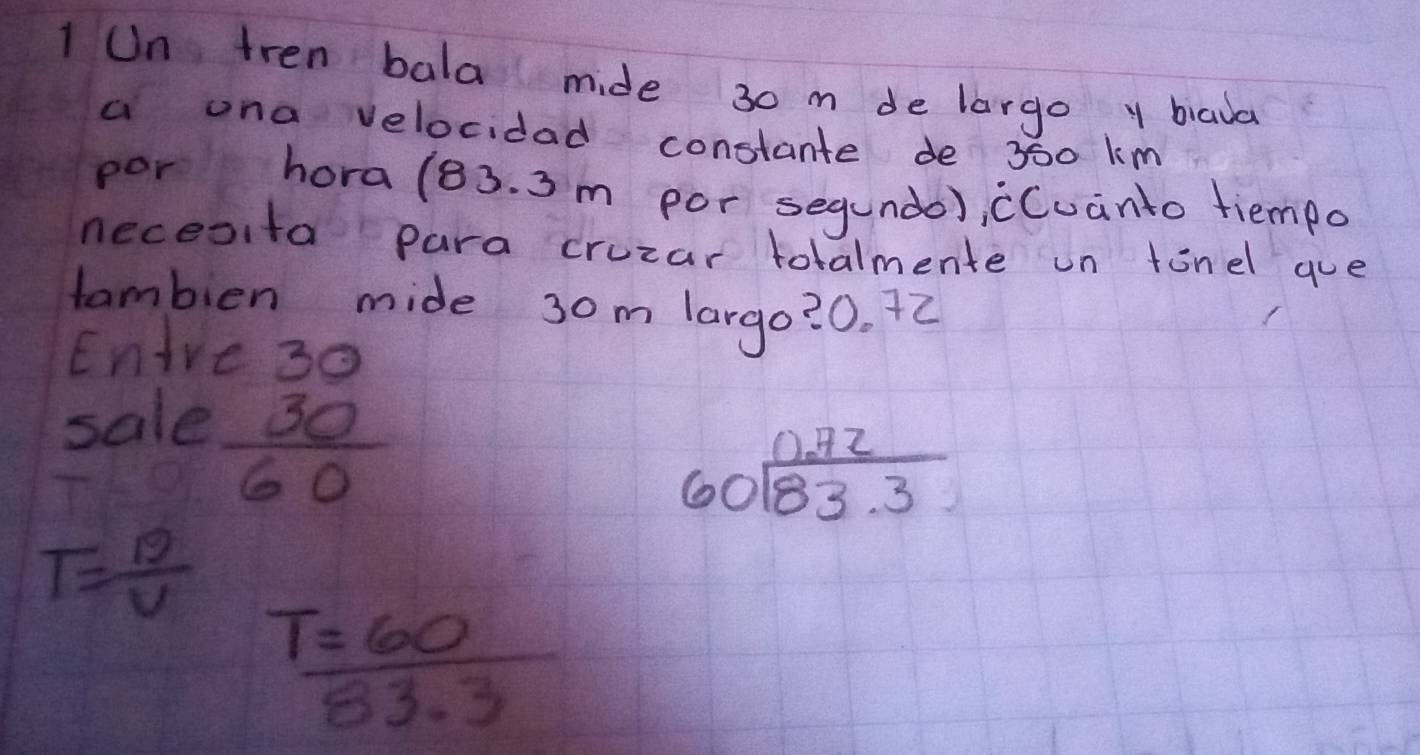 1 Un tren bala mide 30 m de largo y biaja
a una velocidad constante de 300 km
por hora (83.3 m por segundo), ¿Cuánto tiempo
necesita para cruzar totalmente un túnel que
tambien mide 30 m largo? 0.72
Entre 30
sale 30
60
0.72
60 83.3
T = D
V
T = 60
83.3